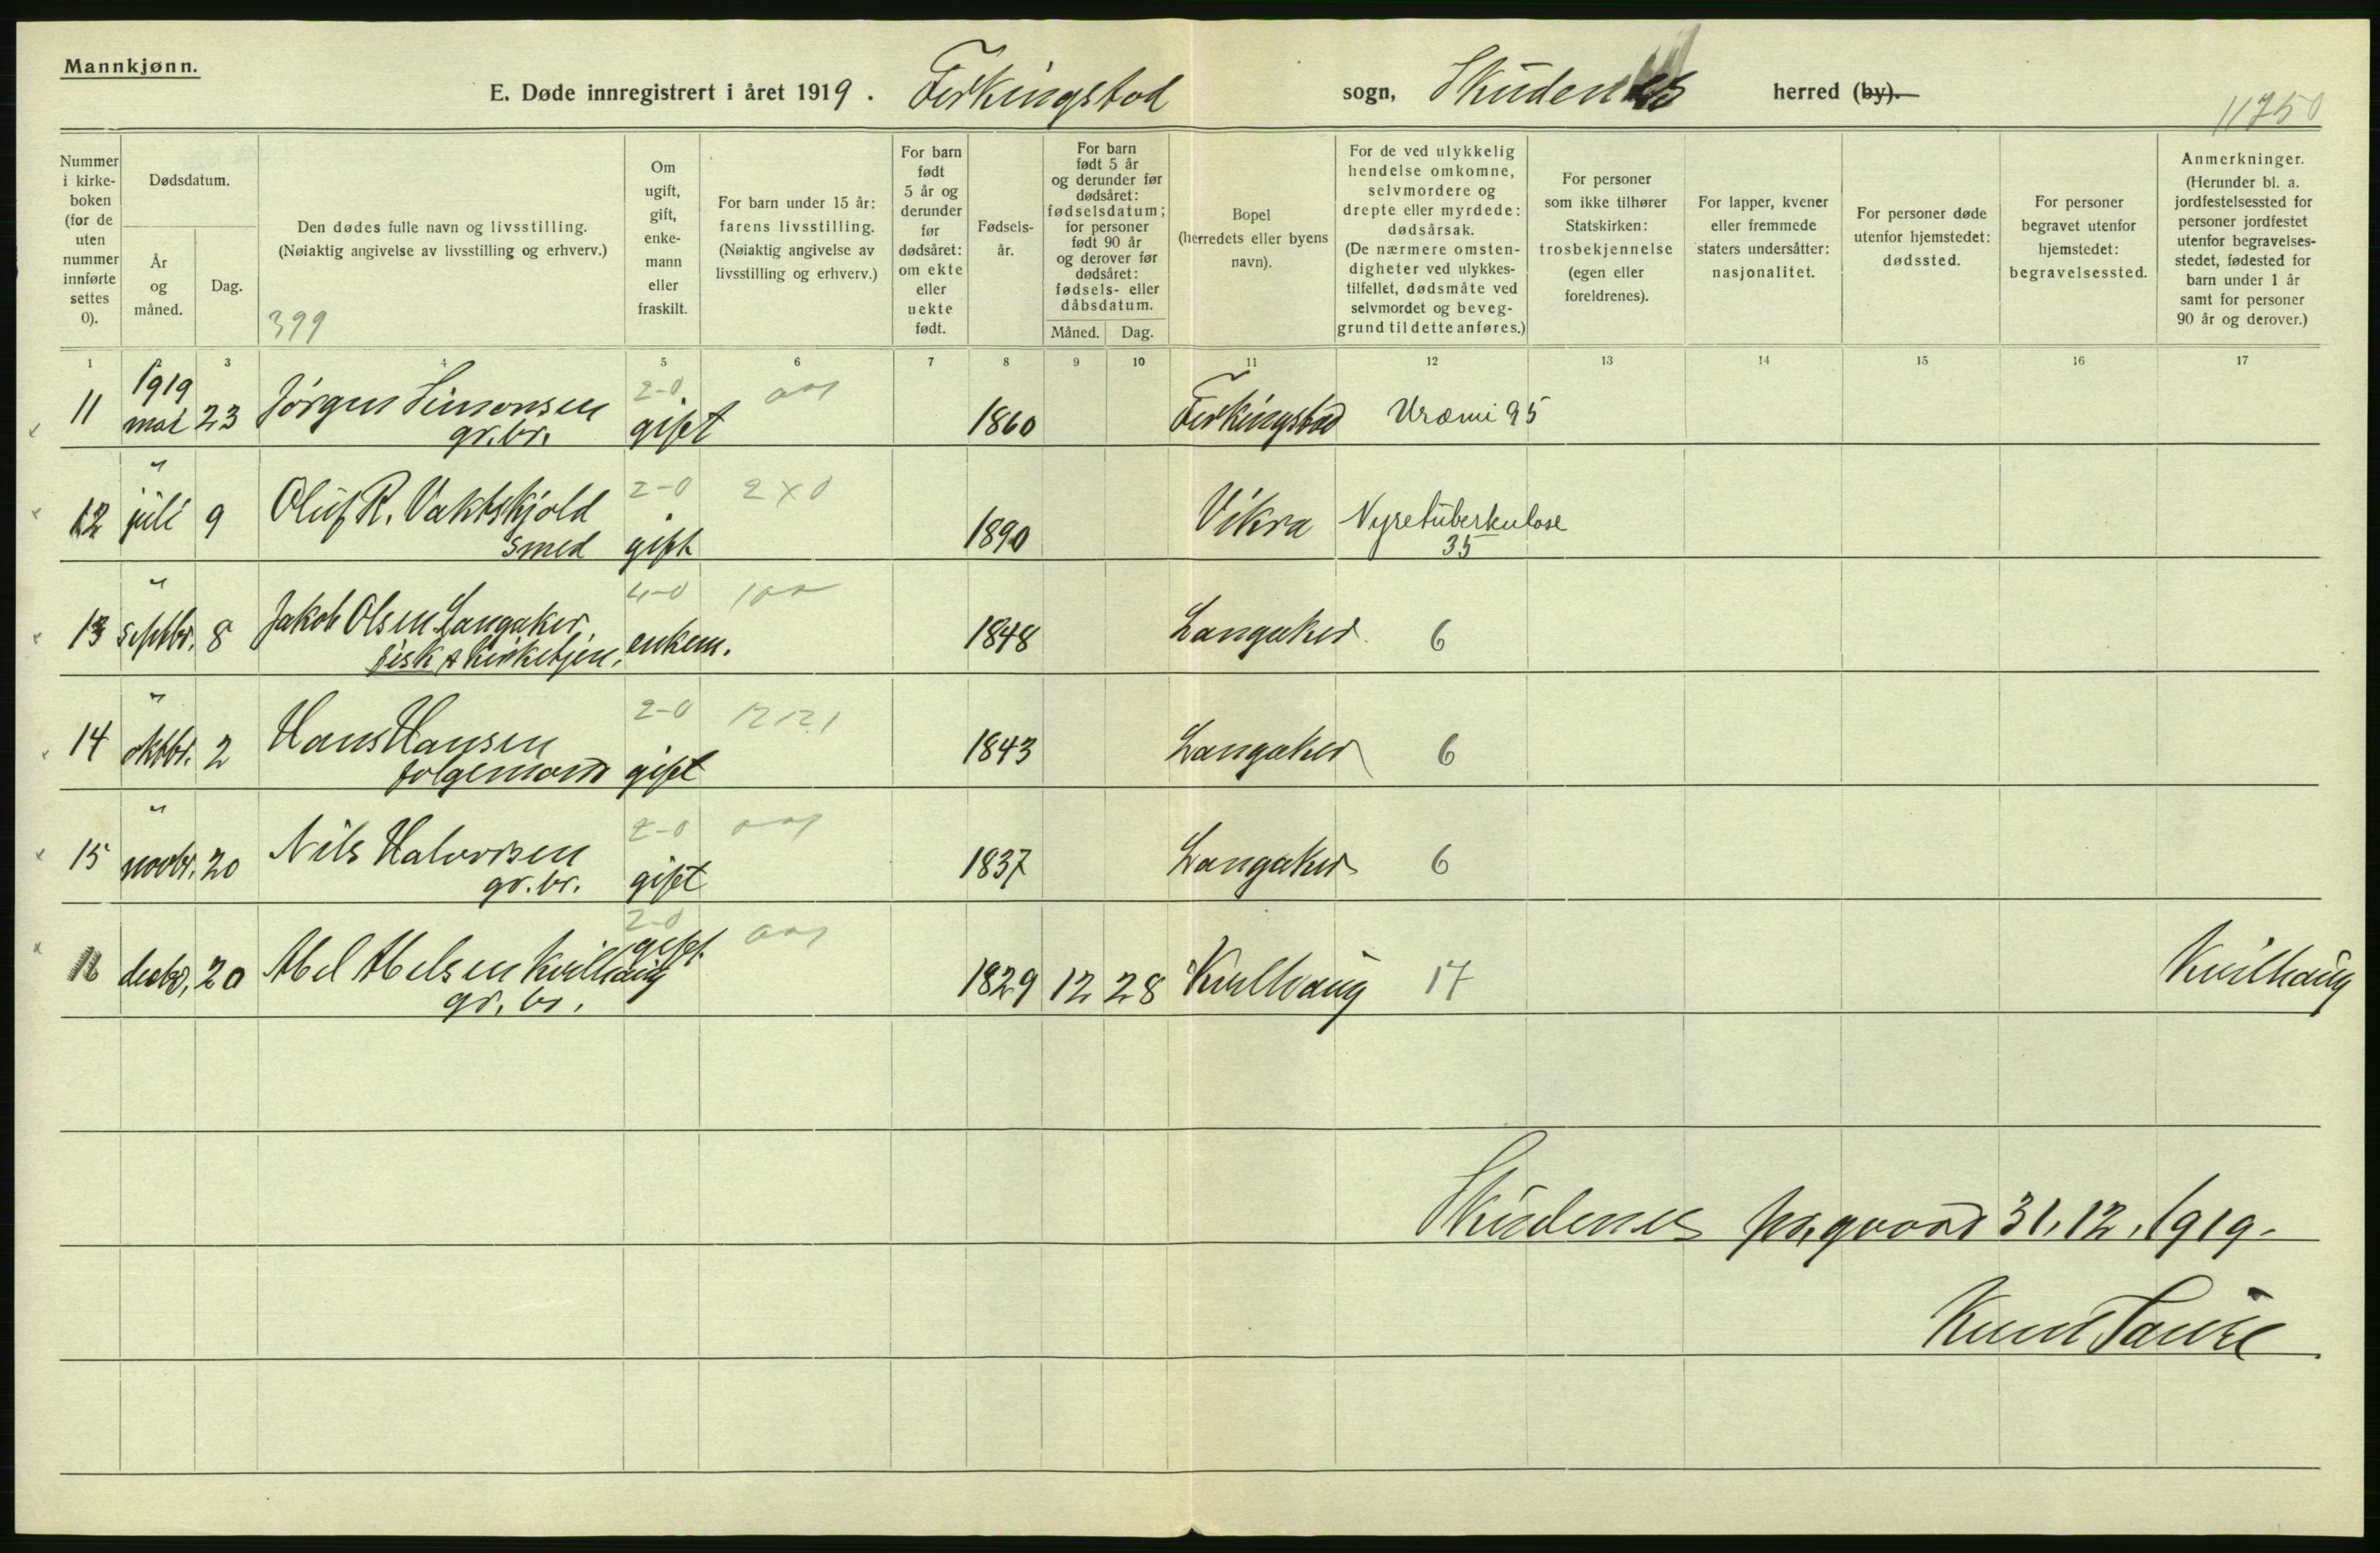 Mannkjønn.
E. Døde innregistrert i året 1919. Ferkingstad sogn, Skudenes herred (by).
11750
Nummer i kirke-boken (for de uten nummer innførte settes 0).
Dødsdatum.
År og måned.
Dag.
Den dødes fulle navn og livsstilling.
(Nøiaktig angivelse av livsstilling og erhverv.)
399
Om ugift, gift, enke-mann eller fraskilt.
For barn under 15 år: farens livsstilling.
(Nøiaktig angivelse av livsstilling og erhverv.)
For barn født 5 år og derunder før dødsåret: om ekte eller uekte født.
Fødsels-år.
For barn født 5 år og derunder før dødsåret: fødselsdatum; for personer født 90 år og derover før dødsåret: fødsels- eller dåbsdatum.
Måned. Dag.
Bopel (herredets eller byens navn).
For de ved ulykkelig hendelse omkomne, selvmordere og drepte eller myrdede: dødsårsak.
(De nærmere omsten-digheter ved ulykkes-tilfellet, dødsmåte ved selvmordet og beveg-grund til dette anføres.)
For personer som ikke tilhører Statskirken: trosbekjennelse (egen eller foreldrenes).
For lapper, kvener eller fremmede staters undersåtter: nasjonalitet.
For personer døde utenfor hjemstedet: dødssted.
For personer begravet utenfor hjemstedet: begravelsessted.
Anmerkninger.
(Herunder bl. a. jordfestelsessted for personer jordfestet utenfor begravelses-stedet, fødested for barn under 1 år samt for personer 90 år og derover.)
1 2 3 4 5 6 7 8 9 10 11 12 13 14 15 16 17
11 1919 mai 23 Jørgen Simonsen gr.br. 2-0 gift 1860 Ferkingstad Uræmi 95
12 " juli 9 Oluf R. Vaktskjold smed 2-0 gift 2x0 1890 Vikra Nyretuberkulose 35
13 " septbr. 8 Jakob Olsen Langaker fisk & kirketjen. 4-0 enkem. 1848 Langaker 6
14 " oktbr. 2 Hans Hansen folgemann 2-0 gift 1843 Langaker 6
15 " novbr. 20 Nils Halvorsen gr.br. 2-0 gift 1837 Langaker 6
16 decbr. 20 Abel Abelsen Kvilhaug gr.br. 2-0 gift 1829 12 28 Kvilhaug 17 Kvilhaug
Skudenes pr.gaard 31.12.1919.